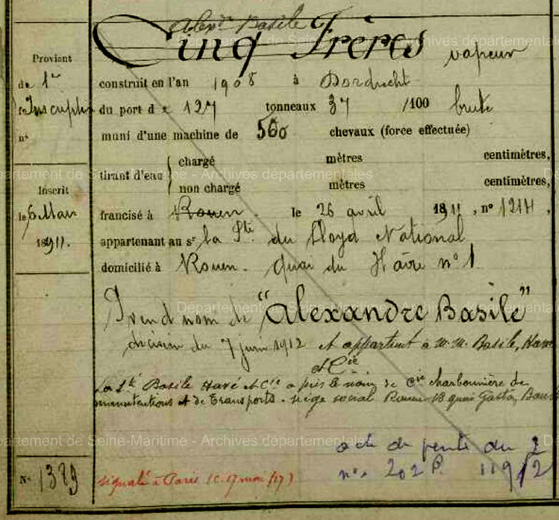 Alex^dre Basile
Cinq Frères vapeur
Provient
de 1re
Inscription
n°
construit en l'an 1908 à Dordrecht
du port de 127 tonneaux 37 /100 brute
muni d'une machine de 560 chevaux (force effectuée)
tirant d'eau { chargé mètres centimètres,
non chargé mètres centimètres,
Inscrit
le 6 Mai
1911.
francisé à Rouen. le 26 avril 1911, n° 1214,
appartenant au sr la Sté du Lloyd National
domicilié à Rouen. quai du Havre n° 1
Prend nom de "Alexandre Basile"
décision du 7 juin 1912 et appartient à M.M. Basile, Havé
et Cie
La Sté Basile Havé et Cie a pris le nom de Cie charbonnière de
manutentions et de transports. siège social Rouen 18 quai Gaston Boulet
acte de vente du 2
n° 202 P. 11912
N° 1389 signalé à Paris (C. 17 mai /17)
Département de Seine-Maritime - Archives départementales